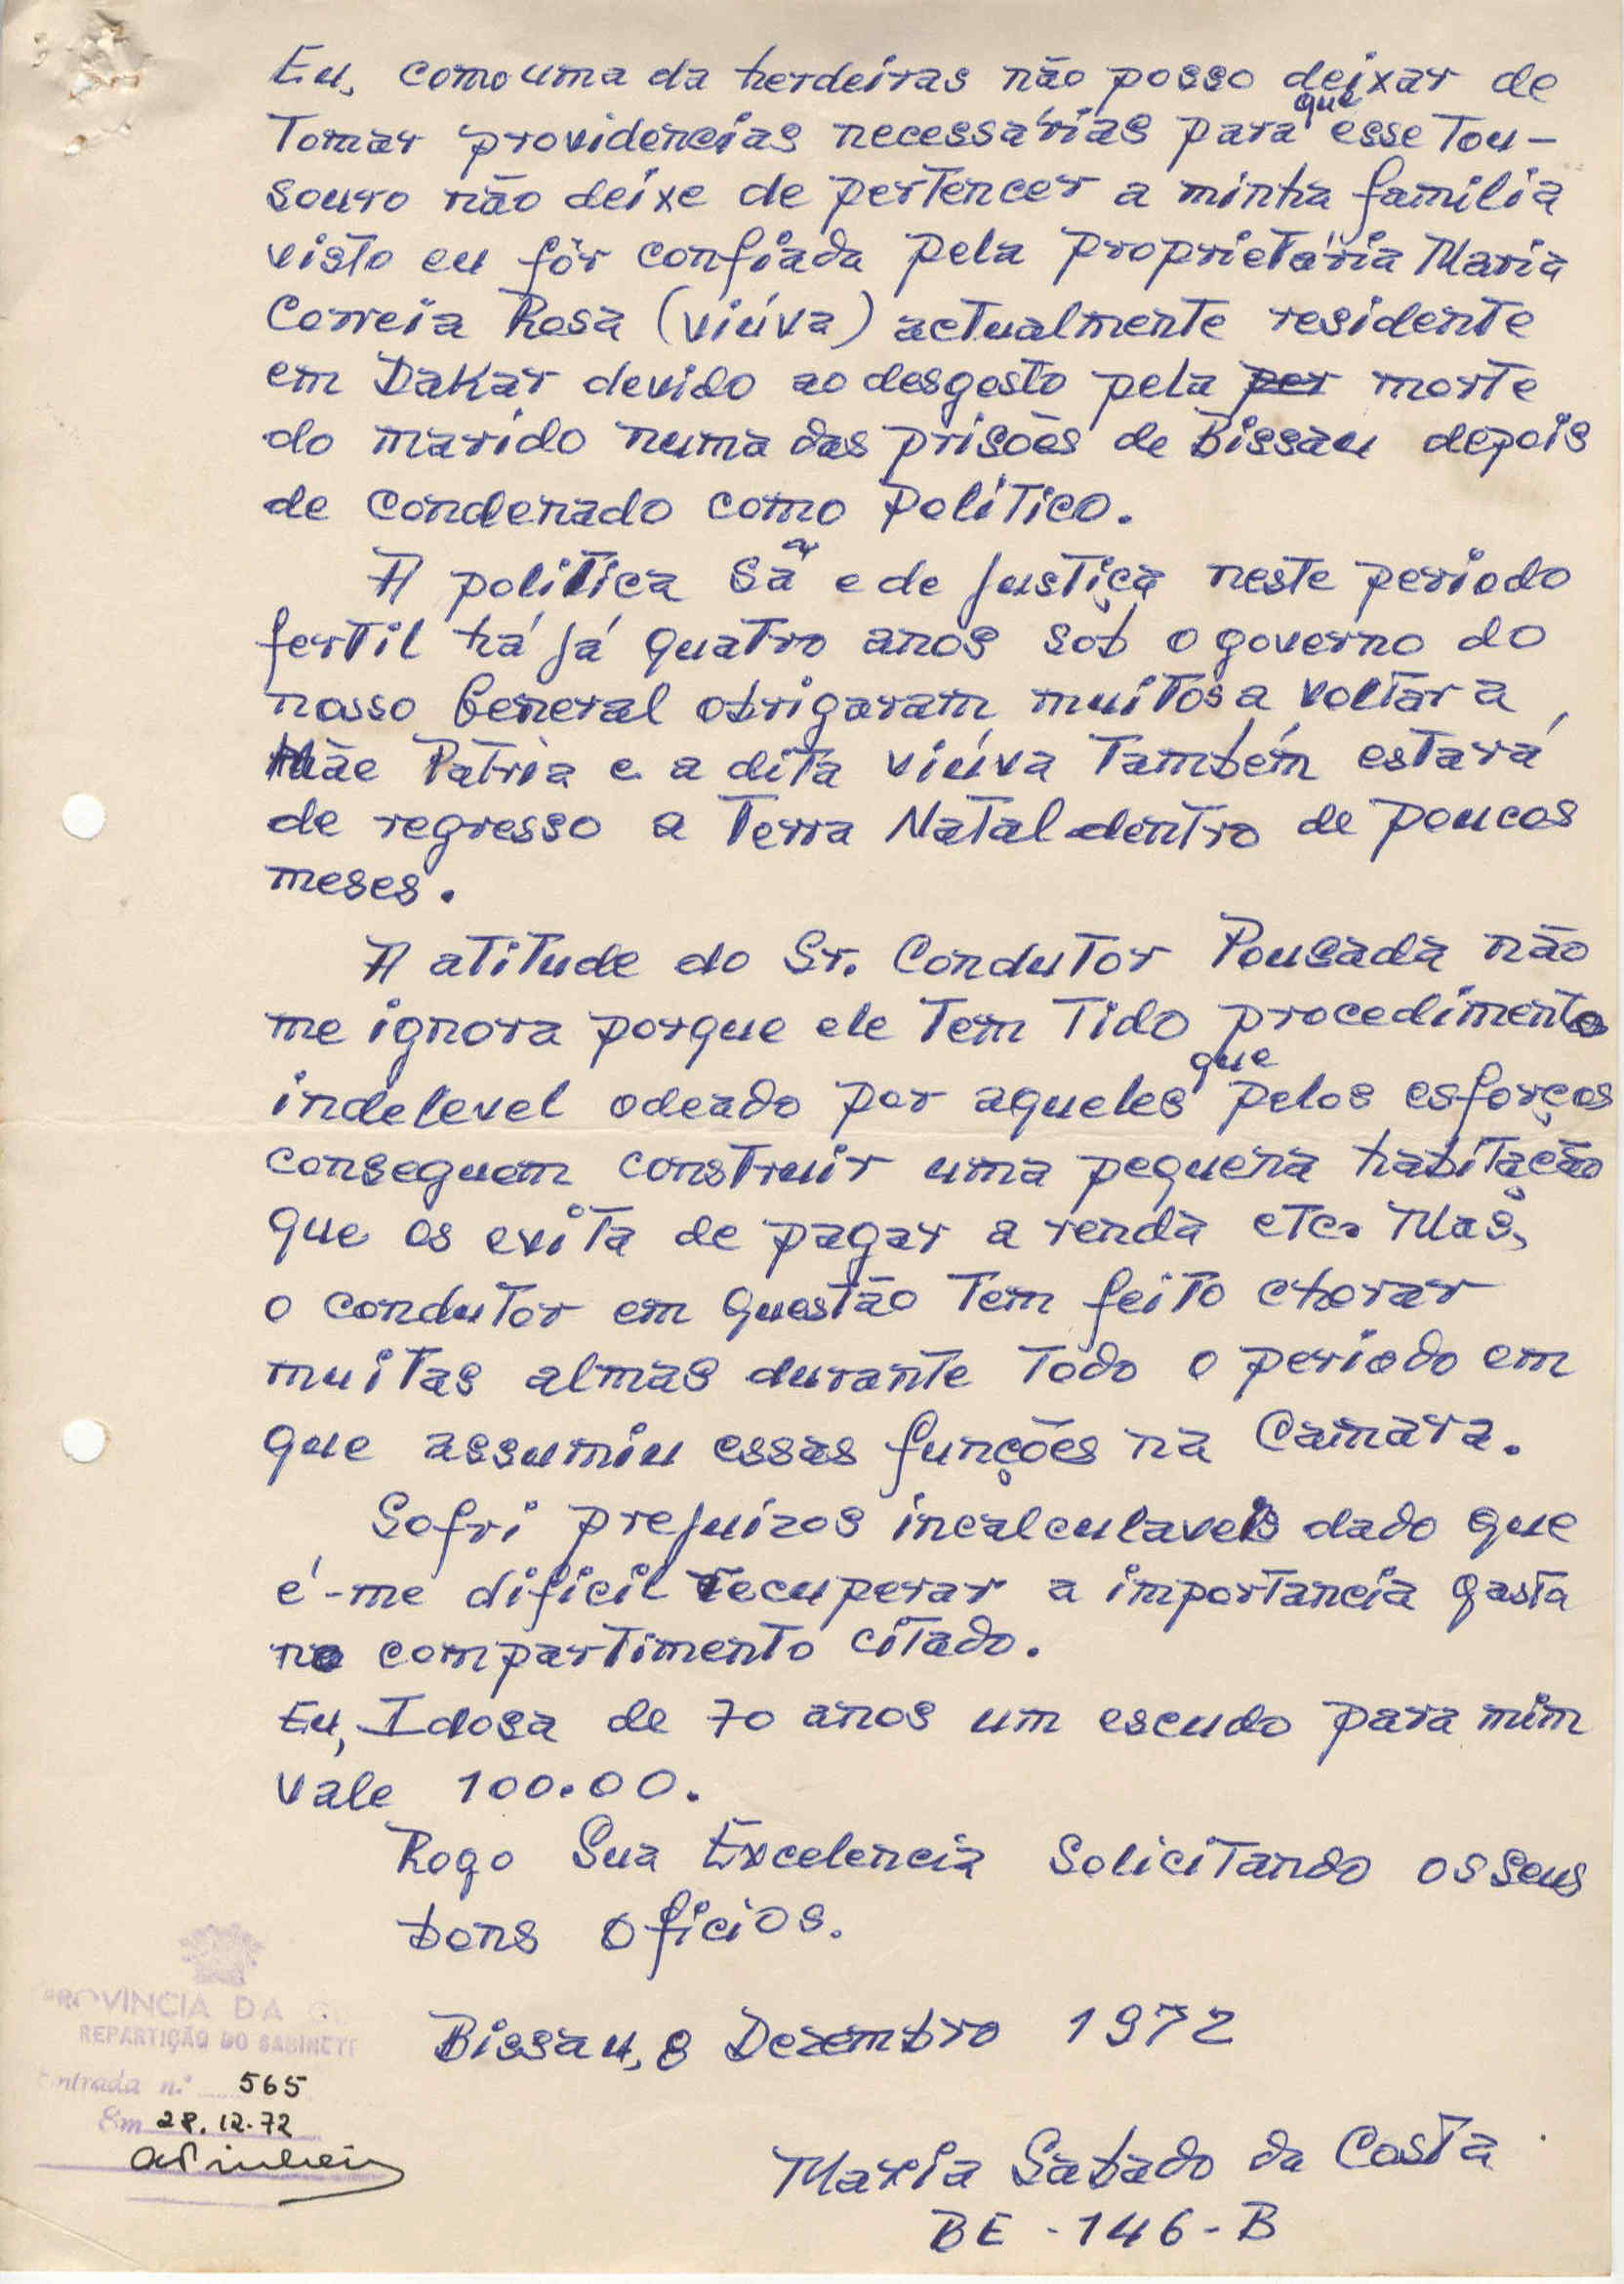 Eu, como uma da herdeiras não posso deixar de
Tomar providencias necessárias para que esse Tou-
souro não deixe de pertencer a minha familia
visto eu fôr confiada pela proprietária Maria
Correia Rosa (viúva) actualmente residente
em Dakar devido ao desgosto pela per morte
do marido numa das prisões de Bissau depois
de condenado como politico.
A politica sã e de justiça neste periodo
fertil há já quatro anos sob o governo do
nosso General obrigaram muitos a voltar a
Mãe Patria e a dita viúva também estará
de regresso a Terra Natal dentro de poucos
meses.
A atitude do Sr. Condutor Pousada não
me ignora porque ele tem tido procedimento
indelevel odeado por aqueles que pelos esforços
conseguem construir uma pequena habitação
que os evita de pagar a renda etc. Mas,
o condutor em questão tem feito chorar
muitas almas durante todo o periodo em
que assumiu essas funções na Camara.
Sofri prejuizos incalculaveis dado que
é-me dificil recuperar a importancia gasta
no compartimento citado.
Eu, Idosa de 70 anos um escudo para mim
vale 100.00.
Rogo Sua Excelencia solicitando os seus
bons oficios.
Bissau, 8 Dezembro 1972
Maria Sabado da Costa
BE - 146 - B
PROVINCIA DA G
REPARTIÇÃO DO GABINETE
Entrada n.º 565
Em 28.12.72